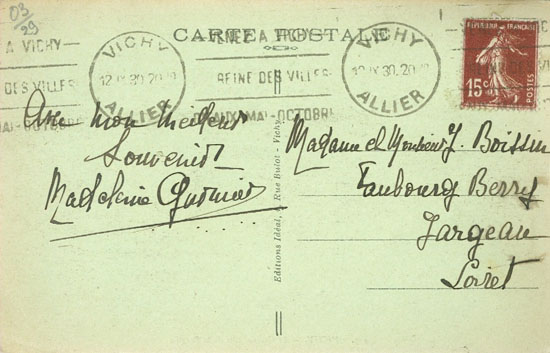 03/29
CARTE POSTALE
A VICHY
DES VILLES
MAI-OCTOBRE
VICHY
12 IX 30. 20
ALLIER
REINE DES VILLES
D'EAUX MAI-OCTOBRE
VICHY
12 IX 30. 20
ALLIER
REPUBLIQUE FRANÇAISE
15c
POSTES
Avec mon meilleur
Souvenir
Madeleine
Editions Idéal, Rue Bulot - Vichy
Madame et Monsieur J. Boissin
Faubourg Berry
Jargeau
Loiret